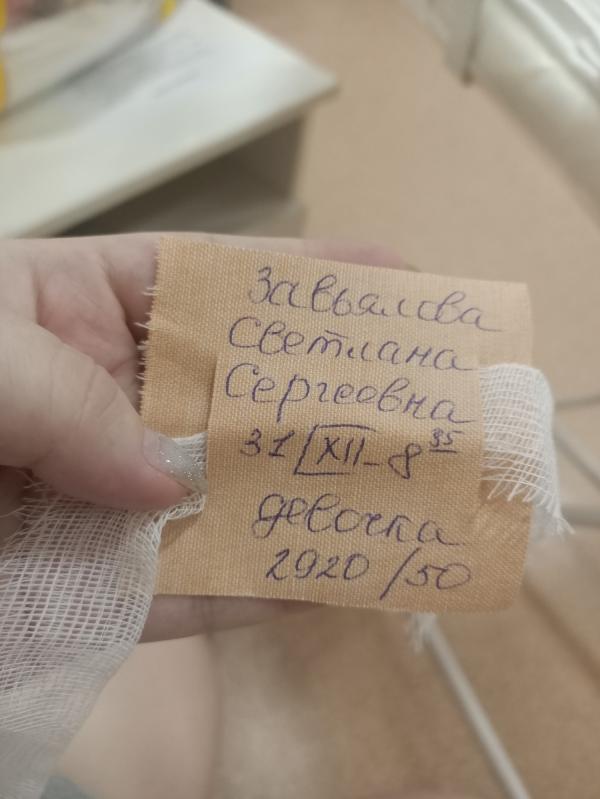 Завьялова
Светлана
Сергеевна
31 XII - 8 35
девочка
2920 /50